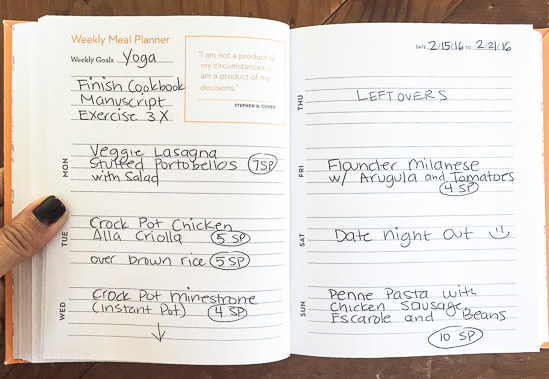 Weekly Meal Planner
Weekly Goals Yoga
Finish Cookbook
Manuscript
Exercise 3x
"I am not a product of
my circumstances. I
am a product of my
decisions."
STEPHEN R. COVEY
MON
Veggie Lasagna
Stuffed Portobellos 7 SP
with Salad
TUE
Crock Pot Chicken
Alla Criolla 5 SP
over brown rice 5 SP
WED
Crock Pot Minestrone
(Instant Pot) 4 SP
↓
DATE 2/15/16 TO 2/21/16
THU
LEFTOVERS
FRI
Flounder Milanese
w/ Arugula and Tomatoes
4 SP
SAT
Date night Out
SUN
Penne Pasta with
Chicken Sausage
Escarole and Beans
10 SP